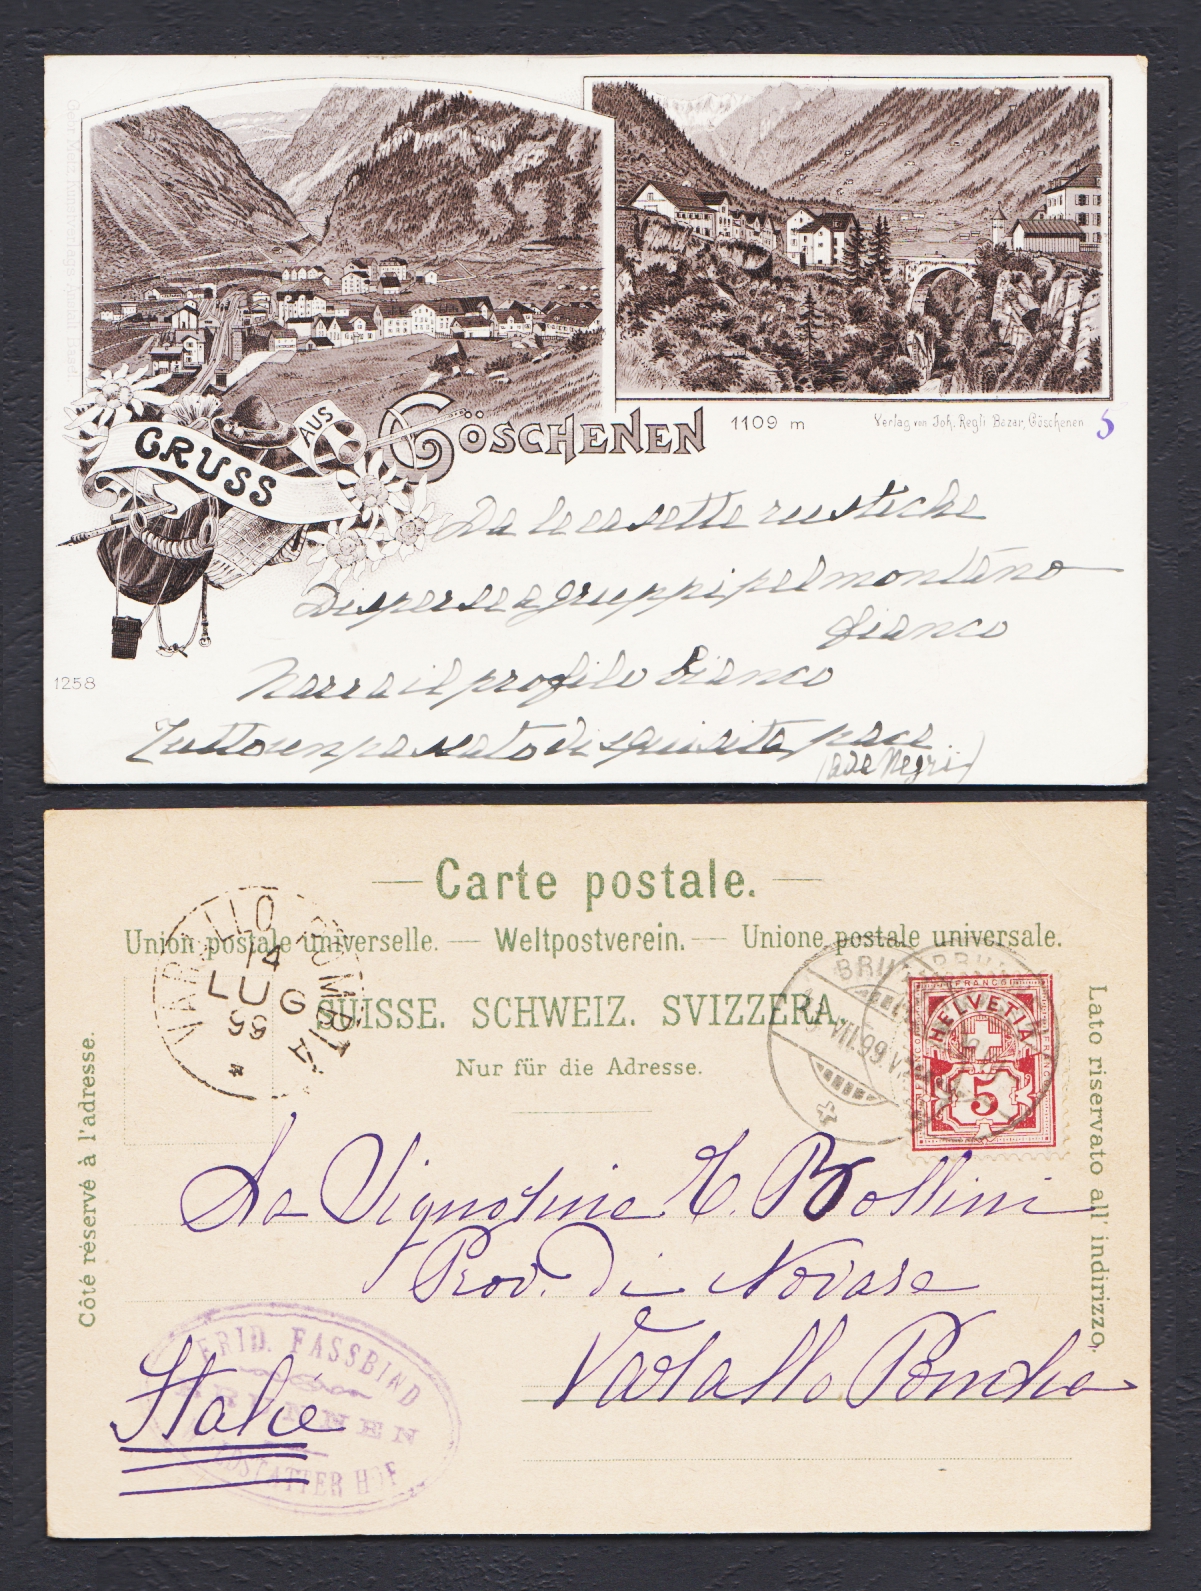 GRUSS
AUS
GÖSCHENEN
1109 m
Verlag von Joh. Regli Bazar, Göschenen
5
Da le casette rustiche
Disperse a gruppi pel montano
fianco
Narra il profilo bianco
Tutto un passato di squisita pace
(Ade Negri)
1258
Carte postale.
Union postale universelle. — Weltpostverein. — Unione postale universale.
SUISSE. SCHWEIZ. SVIZZERA.
Nur für die Adresse.
Côté réservé à l'adresse.
Lato riservato all' indirizzo,
VARALLO POMBIA
14
LUG
BRUNNEN
FRANCO
HELVETIA
5
La Signorina E. Bollini
Prov. di Novara
Varallo Pombia
Italie
FRID. FASSBIND
BRUNNEN
WALDSTÄTTER HOF